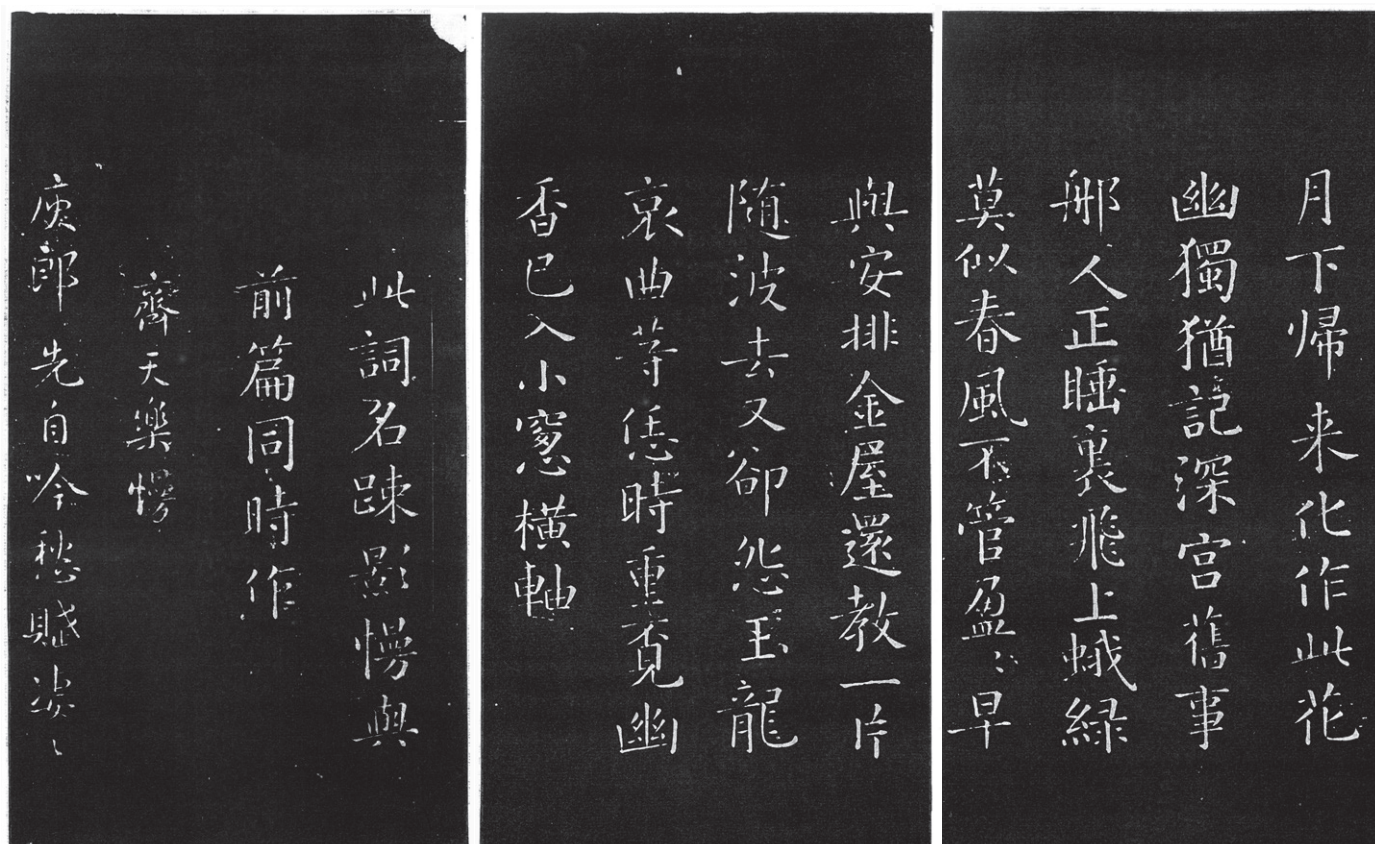 月下歸来化作此花
幽獨猶記深宫舊事
那人正睡裏飛上蛾緑
莫似春風不管盈〻早
與安排金屋還教一片
随波去又卻怨玉龍
哀曲等恁時重覔幽
香已入小窻橫軸
此詞名踈影慢與
前篇同時作
齊天樂慢
庾郎先自吟愁賦淒〻